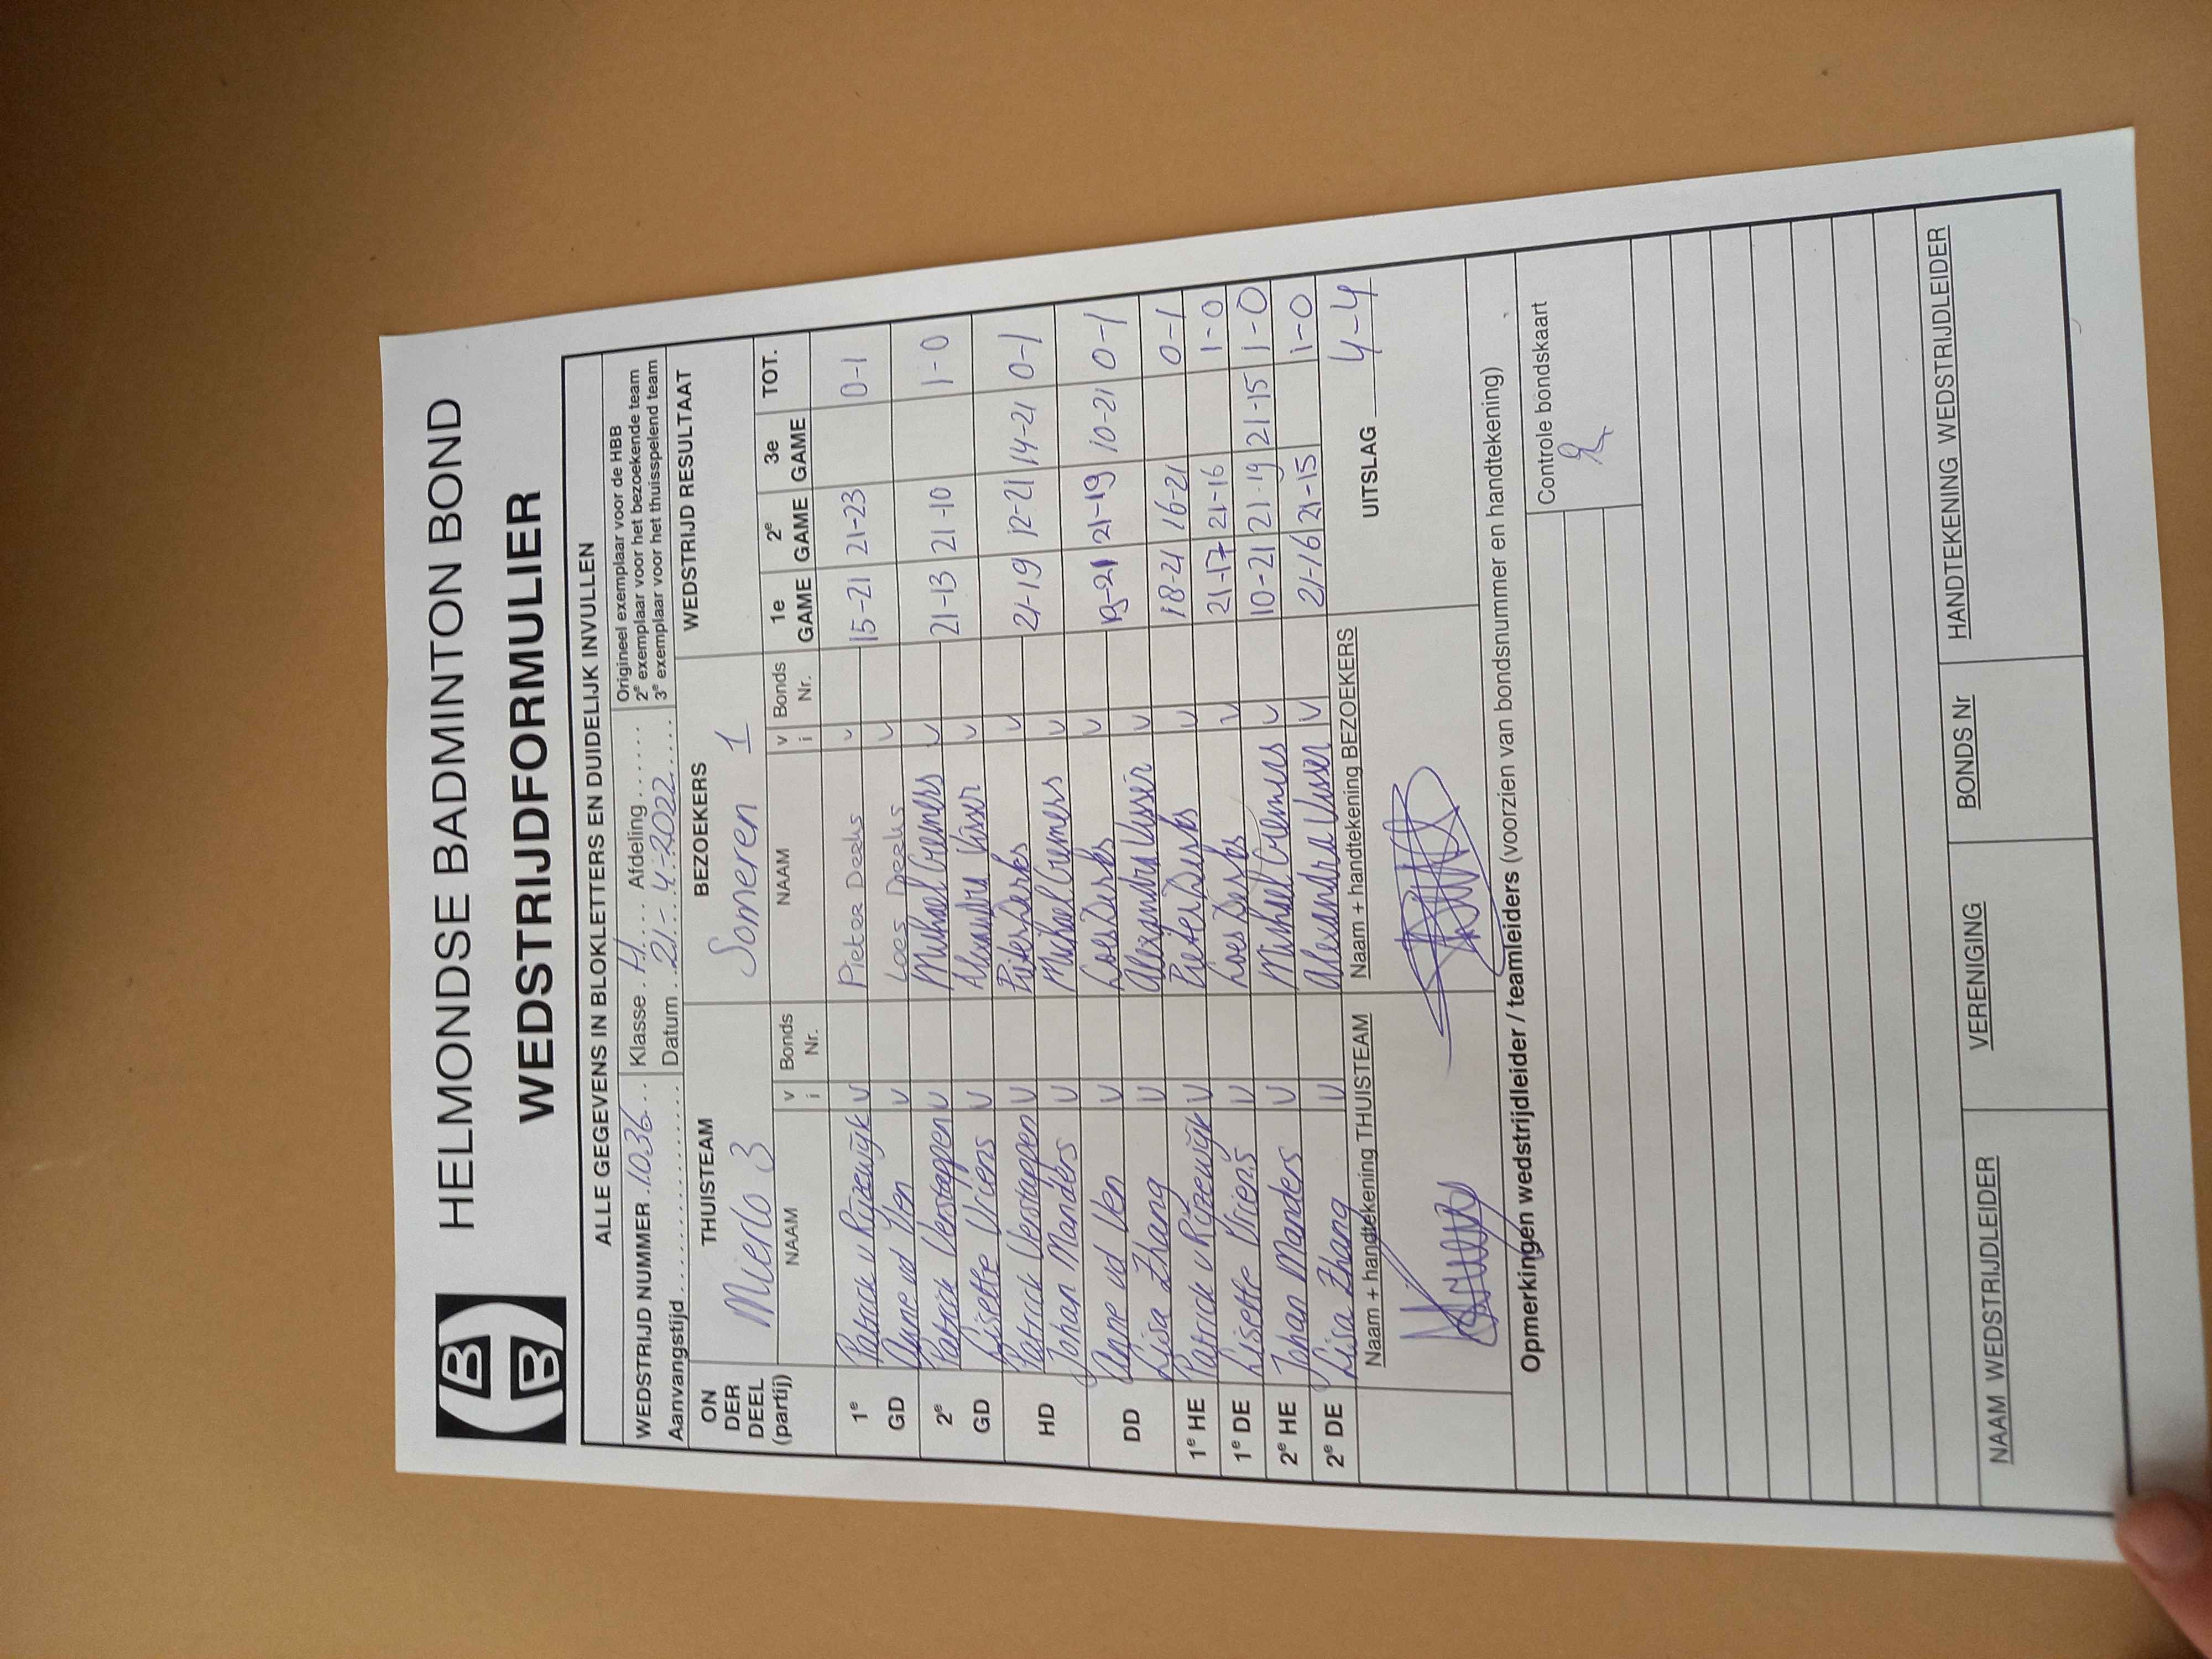 HELMONDSE BADMINTON BOND
WEDSTRIJDFORMULIER
ALLE GEGEVENS IN BLOKLETTERS EN DUIDELIJK INVULLEN
WEDSTRIJD NUMMER 1036 Klasse H Afdeling
Aanvangstijd Datum 21-4-2022
Origineel exemplaar voor de HBB
2e exemplaar voor het bezoekende team
3e exemplaar voor het thuisspelend team
ON DER DEEL (partij) THUISTEAM BEZOEKERS WEDSTRIJD RESULTAAT
Mierlo 3 Someren 1
NAAM v i Bonds Nr. NAAM v i Bonds Nr. 1e GAME 2e GAME 3e GAME TOT.
1e GD Patrick v Rijzewijk v Pieter Derks v 15-21 21-23 0-1
Anne vd Ven v Loes Derks v
2e GD Patrick Verstappen v Michael Cremers v 21-13 21-10 1-0
Lisette Vriens v Alexandra Visser v
HD Patrick Verstappen v Pieter Derks v 21-19 12-21 14-21 0-1
Johan Manders v Michael Cremers v
DD Anne vd Ven v Loes Derks v 19-21 21-19 10-21 0-1
Lisa Zhang v Alexandra Visser v
1e HE Patrick v Rijzewijk v Pieter Derks v 18-21 16-21 0-1
1e DE Lisette Vriens v Loes Derks v 21-17 21-16 1-0
2e HE Johan Manders v Michael Cremers v 10-21 21-19 21-15 1-0
2e DE Lisa Zhang v Alexandra Visser v 21-16 21-15 1-0
Naam + handtekening THUISTEAM Naam + handtekening BEZOEKERS UITSLAG 4-4
Opmerkingen wedstrijdleider / teamleiders (voorzien van bondsnummer en handtekening)
Controle bondskaart
NAAM WEDSTRIJDLEIDER VERENIGING BONDS Nr HANDTEKENING WEDSTRIJDLEIDER